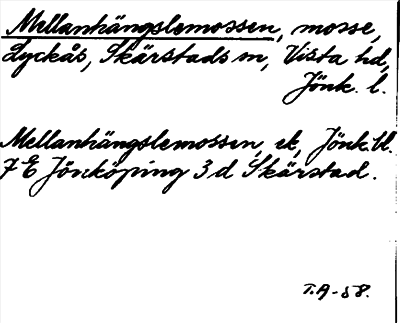 Mellanhängslemossen, mosse,
Lyckås, Skärstads sn, Vista hd,
Jönk. l.
Mellanhängslemossen, ek, Jönk. bl.
7 E Jönköping 3 d Skärstad.
T.A-58.